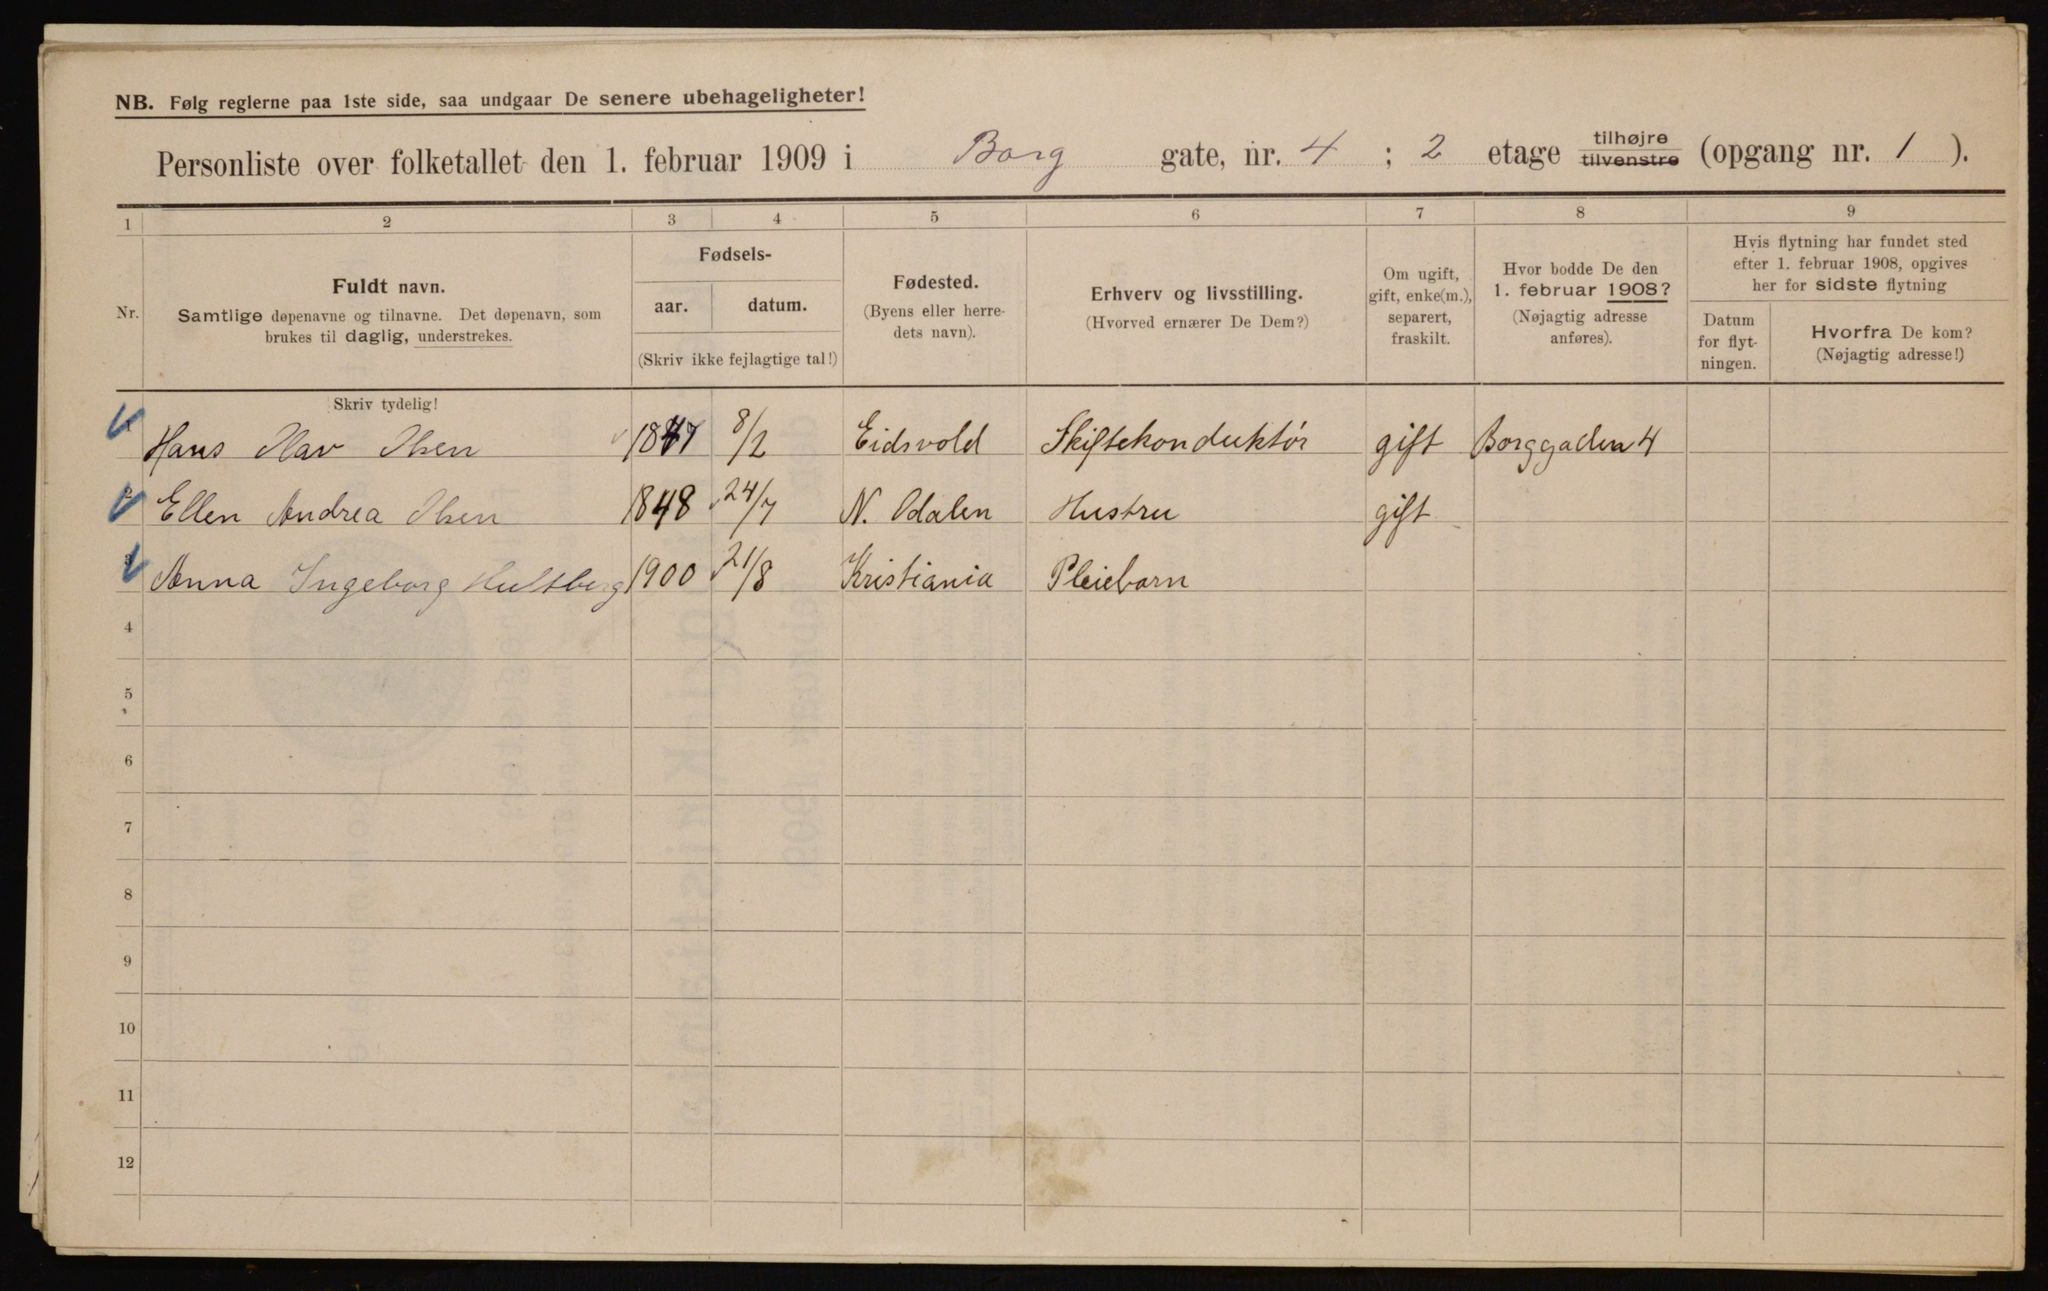 NB. Følg reglerne paa 1ste side, saa undgaar De senere ubehageligheter!
Personliste over folketallet den 1. februar 1909 i Borg gate, nr. 4 ; 2 etage tilhøjre tilvenstre (opgang nr. 1 ).
1 2 3 4 5 6 7 8 9
Nr.
Fuldt navn.
Samtlige døpenavne og tilnavne. Det døpenavn, som
brukes til daglig, understrekes.
Skriv tydelig!
Fødsels-
aar. datum.
(Skriv ikke fejlagtige tal!)
Fødested.
(Byens eller herre-
dets navn).
Erhverv og livsstilling.
(Hvorved ernærer De Dem?)
Om ugift,
gift, enke(m.),
separert,
fraskilt.
Hvor bodde De den
1. februar 1908?
(Nøjagtig adresse
anføres).
Hvis flytning har fundet sted
efter 1. februar 1908, opgives
her for sidste flytning
Datum
for flyt-
ningen.
Hvorfra De kom?
(Nøjagtig adresse!)
Hans Olav Olsen 1847 8/2 Eidsvold Skiftekonduktør gift Borggaden 4
Ellen Andrea Olsen 1848 24/7 N. Odalen Hustru gift
3 Anna Ingeborg Hultberg 1900 21/8 Kristiania Pleiebarn
4
5
6
7
8
9
10
11
12